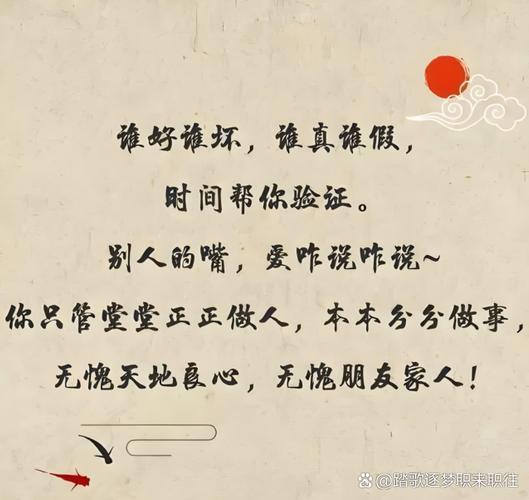 谁好谁坏，谁真谁假，
时间帮你验证。
别人的嘴，爱咋说咋说~
你只管堂堂正正做人，本本分分做事，
无愧天地良心，无愧朋友家人！
@踏歌逐梦职来职往